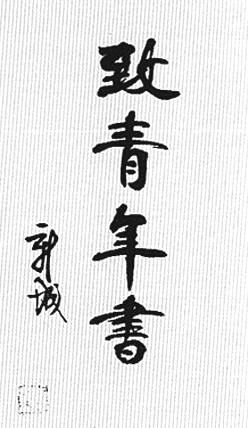 致青年書
新城